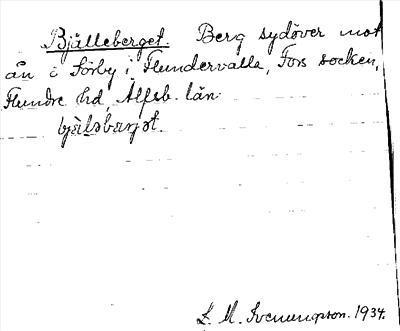 Bjälleberget. Berg sydöver mot
ån i Sörby i Flundervalla, Fors socken,
Flundre hd, Älfsb. län.
bjälsbarjət.
L. M. Svenungsson. 1934.